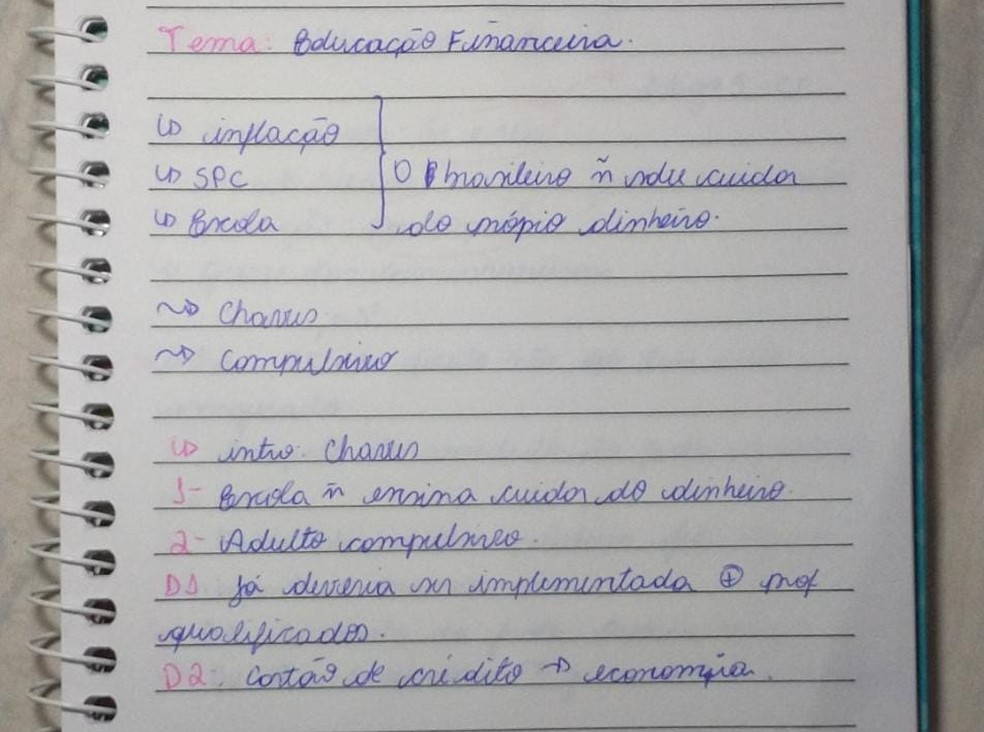 Tema: Educação Financeira.
↳ inflação
↳ SPC
↳ Escola
O brasileiro ñ sabe cuidar
do própio dinheiro.
~> Chaves
~> Compulsivo
↳ intro: Chaves
1- Escola ñ ensina cuidar do dinheiro.
2- Adulto compulsivo.
D1 Já deveria ser implementada ⊕ prof
qualificados.
D2: Cartão de crédito → economia.